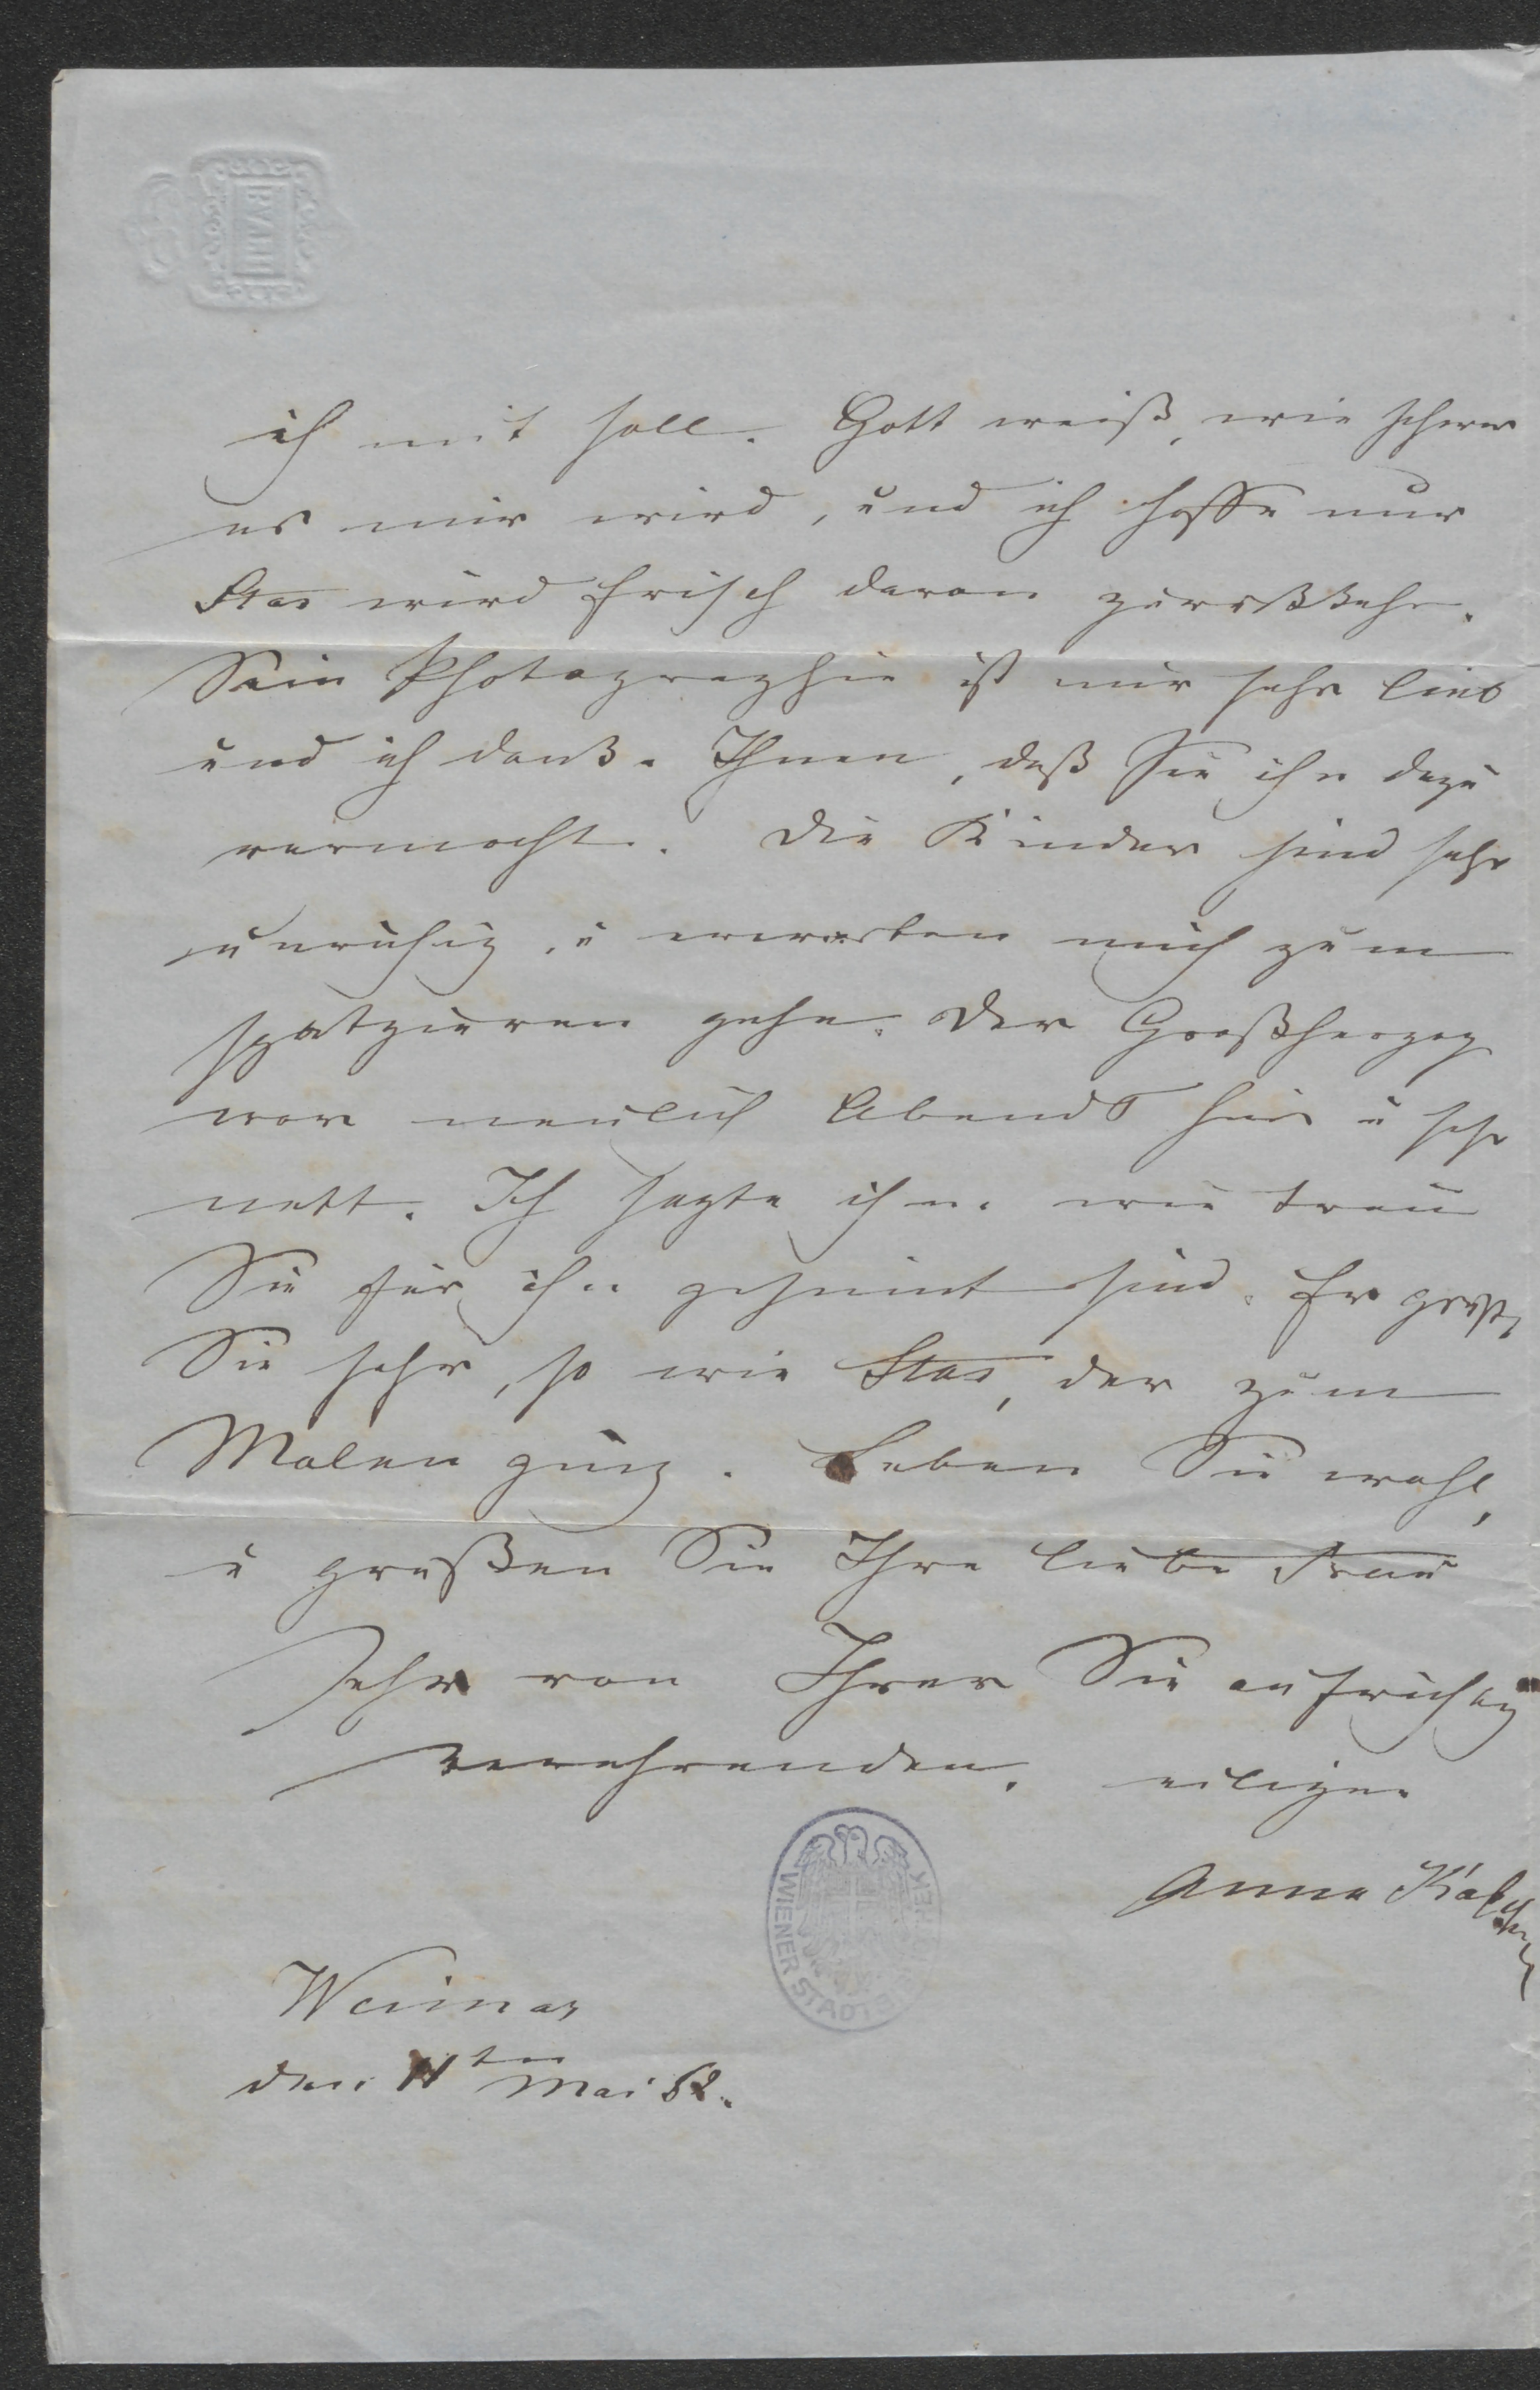 BATH
ich mit soll. Gott weiß, wie schwer
es mir wird, und ich hoffe nur
Stas wird frisch davon zurükkehr.
Sein Photographie ist mir sehr lieb
und ich danke Ihnen, daß Sie ihn dazu
vermocht. Die Kinder sind sehr
unruhig, u erwarten mich zum
spatzieren gehn. Der Großherzog
war neulich Abends hier u sehr
nett. Ich sagte ihm wie treu
Sie für ihn gesinnt sind. Er grüßt
Sie sehr, so wie Stas, der zum
Malen ging. Leben Sie wohl,
u grüßen Sie Ihre liebe Frau
sehr von Ihrer Sie aufrichtig
verehrenden, eiligen
Anna
WIENER STADTBIBLIOTHEK
Weimar
den 11ten Mai